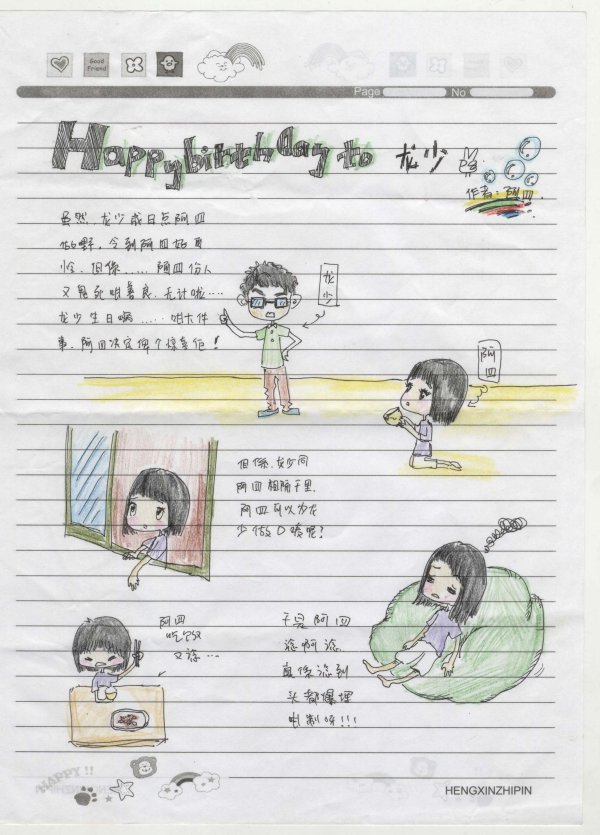 Good
Friend
Page No
Happy birthday to 龙少
作者:阿四.
虽然,龙少成日点阿四
做野,令到阿四好可
怜,但係......阿四份人
又鬼死咁善良,无计啦....
龙少生日喎..... 咁大件
事,阿四决定俾个惊喜佢!
龙少
阿四
但係,龙少同
阿四相隔千里.
阿四可以为龙
少做D嘜呢?
阿四
吃饭
又谂...
于是阿四
谂啊谂
直係谂到
头都爆埋
咁制呀!!!
HAPPY!!
HENGXINZHIPIN